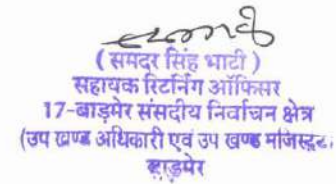 ( समदर सिंह भाटी )
सहायक रिटर्निंग ऑफिसर
17-बाड़मेर संसदीय निर्वाचन क्षेत्र
(उप खण्ड अधिकारी एवं उप खण्ड मजिस्ट्रेट)
बाड़मेर